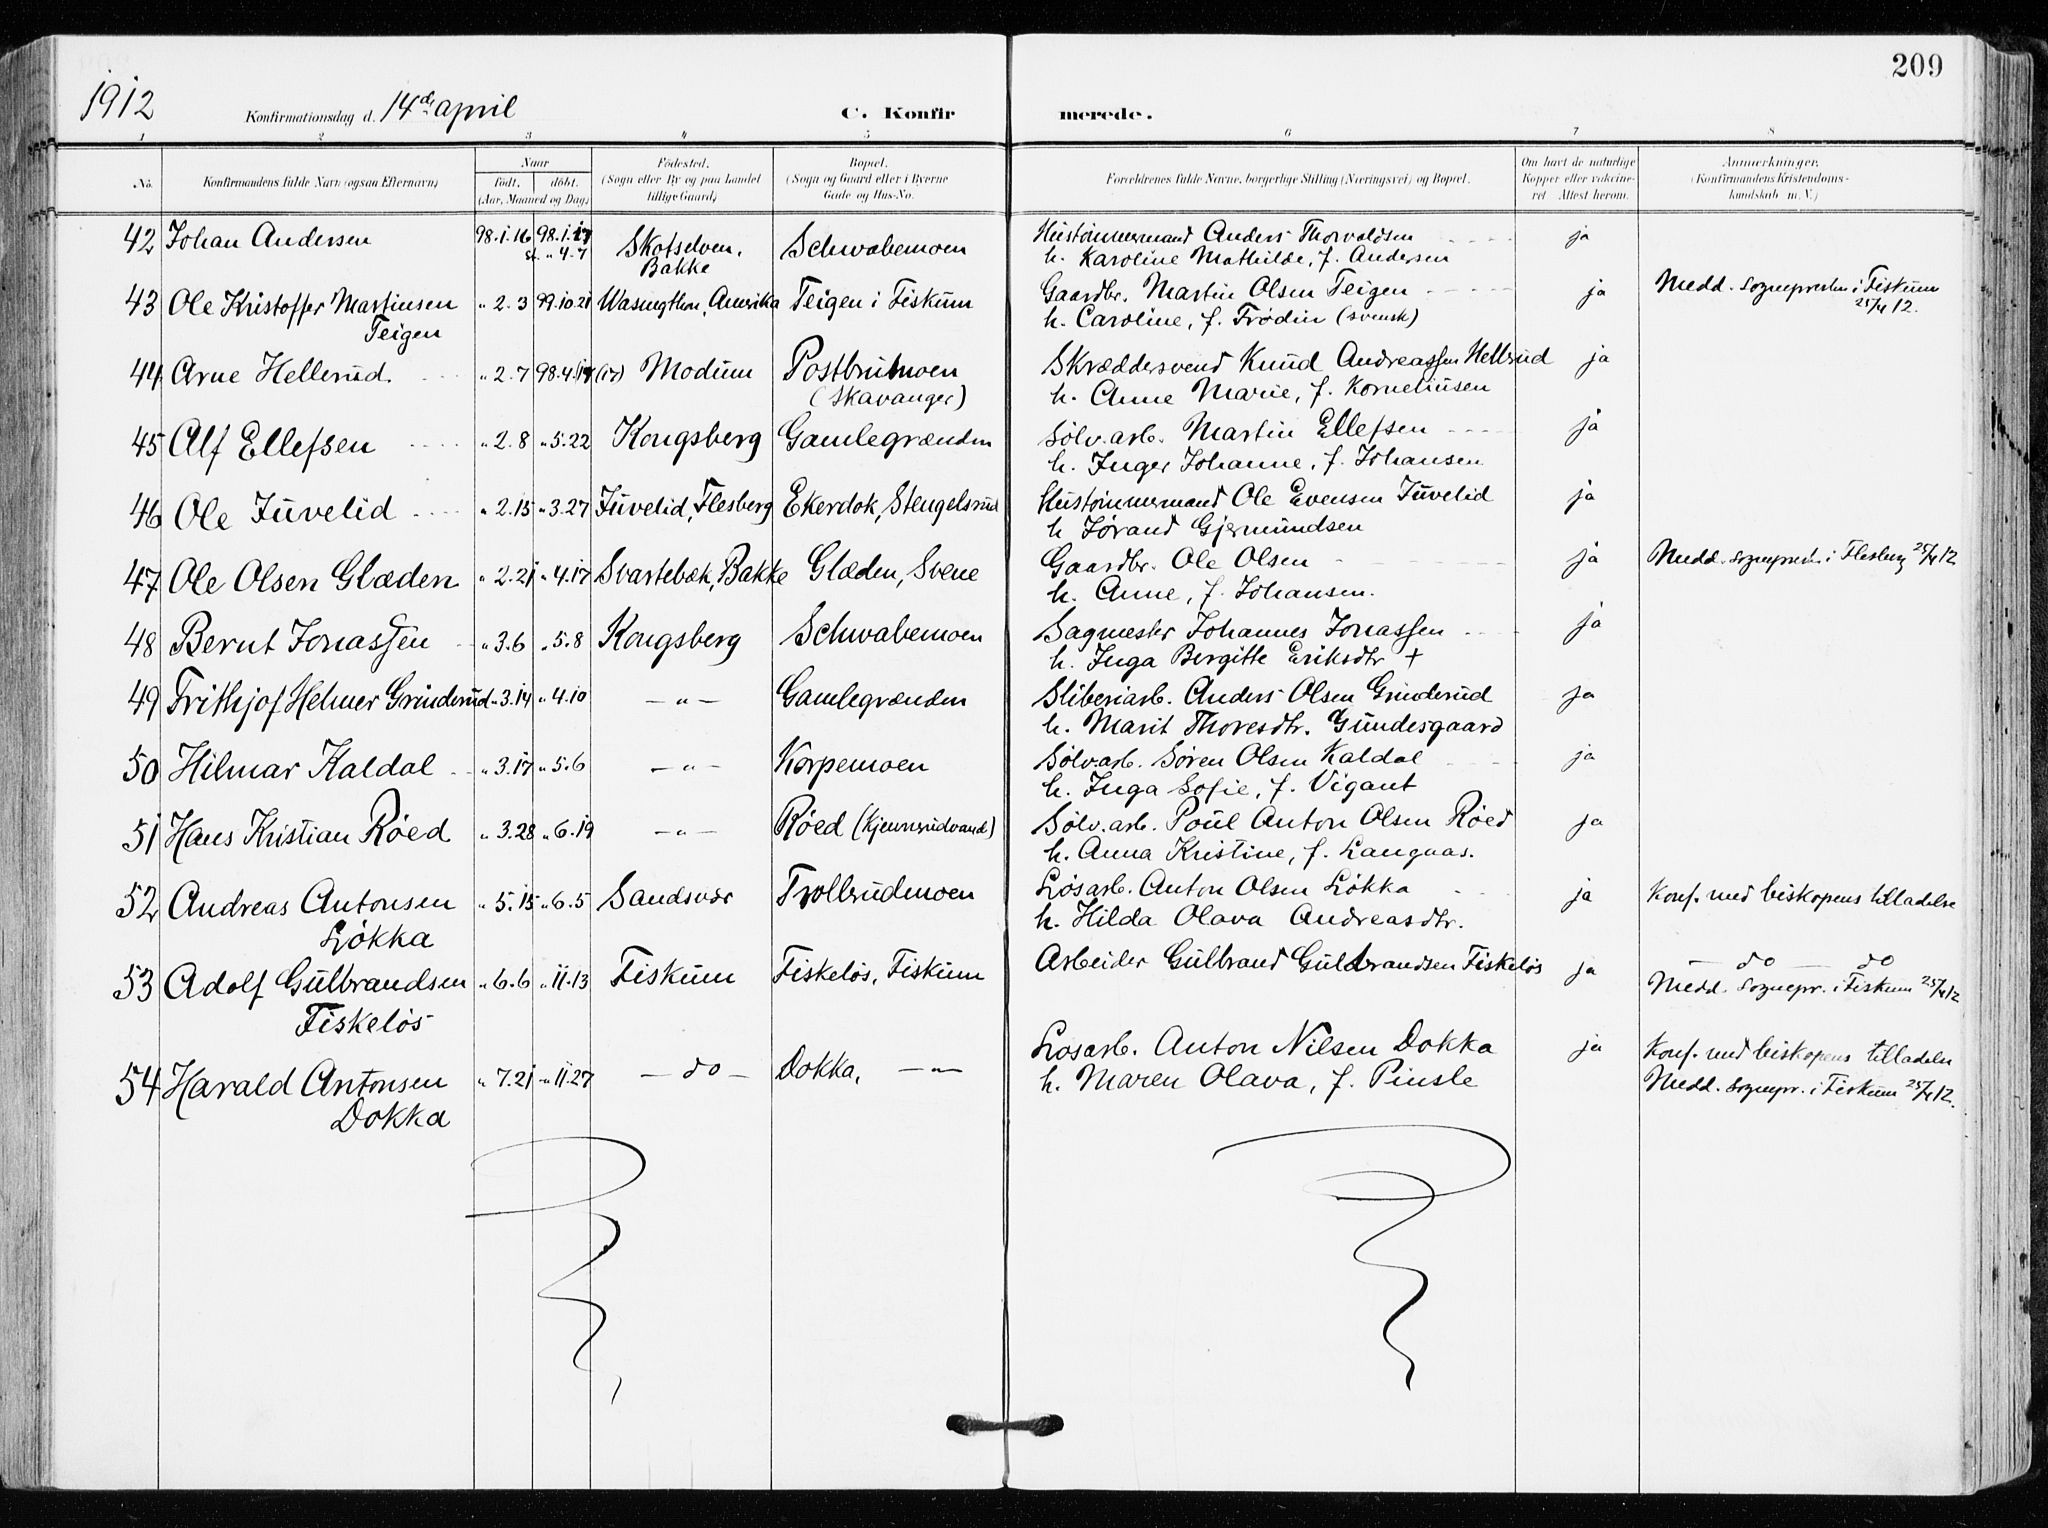 209
1912 Konfirmationsdag d. 14de april C. Konfirmerede.
1 2 3 4 5 6 7 8
No. Konfirmandens fulde Navn (ogsaa Efternavn) Naar født, døbt. (Aar, Maaned og Dag) Fødested. (Sogn eller By og paa Landet tillige Gaard) Bopæl. (Sogn og Gaard eller i Byerne Gade og Hus-No. Forældrenes fulde Navne, borgerlige Stilling (Næringsvei) og Bopæl. Om havt de naturlige Kopper eller vakcineret Attest herom. Anmerkninger. (Konfirmandens Kristendomskundskab m. V.)
42 Johan Andersen 98.1.16 98.1.17 Skotselven, Schwabemoen Hustømmermand Anders Thorvaldsen ja
" 4.7 Bakke h. Karoline Mathilde, f. Andersen
43 Ole Kristoffer Martinsen " 2.3 99.10.21 Wasingthon, Amerika Teigen i Fiskum Gaardbr. Martin Olsen Teigen ja Medd. sognepresten i Fiskum
Teigen h. Caroline, f. Frødin (svensk) 25/4 12.
44 Arne Hellerud " 2.7 98.4.17 (17) Modum Postbrumoen Skræddersvend Knud Andreassen Hellerud ja
(Skavanger) h. Anne Marie, f. Korneliusen
45 Alf Ellefsen " 2.8 " 5.22 Kongsberg Gamlegrænden Sølv.arb. Martin Ellefsen ja
h. Inger Johanne, f. Johansen
46 Ole Juvelid " 2.15 " 3.27 Juvelid, Flesberg Ekerdok, Stengelsrud Hustømmermand Ole Evensen Juvelid ja
h Jørand Gjermundsen
47 Ole Olsen Glæden " 2.21 " 4.17 Svartebæk, Bakke Glæden, Svene Gaardbr. Ole Olsen ja Medd. sogneprest. i Flesberg 25/4 12
h. Anne, f. Johansen.
48 Bernt Jonassen " 3.6 " 5.8 Kongsberg Schwabemoen Sagmester Johannes Jonassen ja
h. Inga Bergitte Eriksdtr +
49 Frithjof Helmer Grinderud " 3.14 " 4.10 — " — Gamlegrænden Sliberiarb. Anders Olsen Grinderud ja
h. Marit Thoresdtr. Gundesgaard
50 Hilmar Kaldal " 3.17 " 5.6 — " — Korpemoen Sølv.arb. Søren Olsen Kaldal ja
h. Inga Sofie, f. Vigant
51 Hans Kristian Røed " 3.28 " 6.19 — " — Røed (Kjennerudvand) Sølv.arb. Poul Anton Olsen Røed ja
h. Anna Kristine, f. Langaas.
52 Andreas Antonsen " 5.15 " 6.5 Sandsvær Trollerudmoen Løsarb. Anton Olsen Løkka ja Konf. med biskopens tilladelse
Løkka h. Hilda Olava Andreasdtr.
53 Adolf Gulbrandsen " 6.6 " 11.13 Fiskum Fiskeløs, Fiskum Arbeider Gulbrand Guldbrandsen Fiskeløs ja — do — do
Fiskeløs Medd. Sognepr. i Fiskum 25/4 12
54 Harald Antonsen " 7.21 " 11.27 — do — Dokka, — " — Løsarb. Anton Nilsen Dokka ja Konf. med biskopens tilladelse
Dokka h. Maren Olava, f. Pinsle Medd. sognepr. i Fiskum 25/4 12.